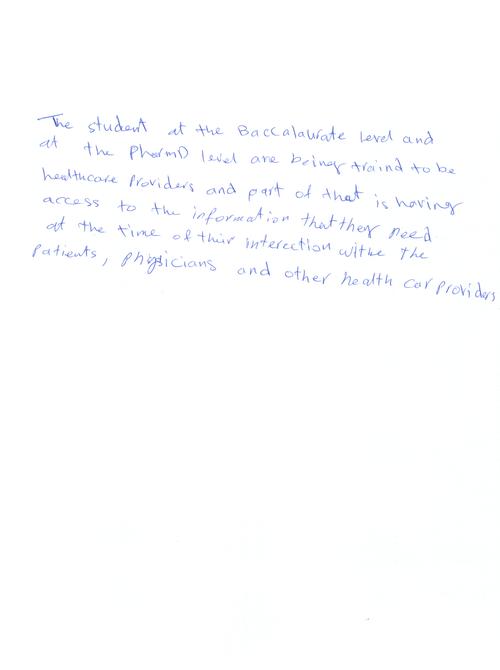 The student at the Baccalaurate level and
at the PharmD level are being traind to be
healthcare providers and part of that is having
access to the information that they need
at the time of their interection withe the
Patients, physicians and other health car providers